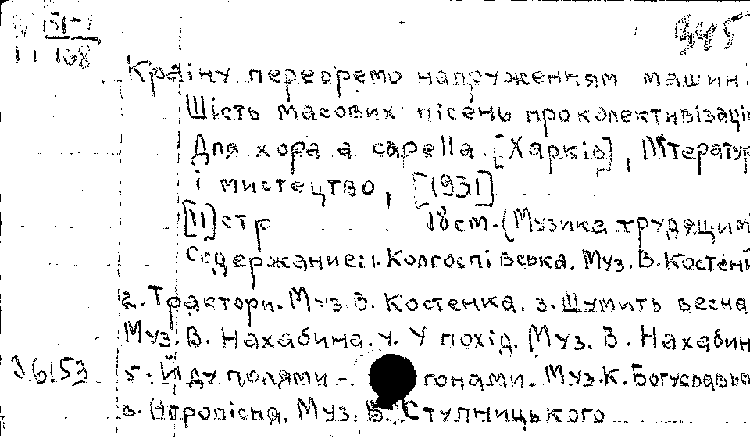 151-1
11 168
945
Країну переоремо напруженням машин.
Шість масових пісень про колективізацію
Для хора а capella. [Харків], Літератур
і мистецтво, [1931]
[11] стр 18 см. (Музика трудящим
Содержание: 1. Колгоспівська. Муз. В. Костен
2. Трактори. Муз. В. Костенка. 3. Шумить весна
Муз. В. Нахабина. 4. У похід. Муз. В. Нахабин
36153 5. Йду полями - гонами. Муз. К. Богуславсь
Муз. В. Ступницького